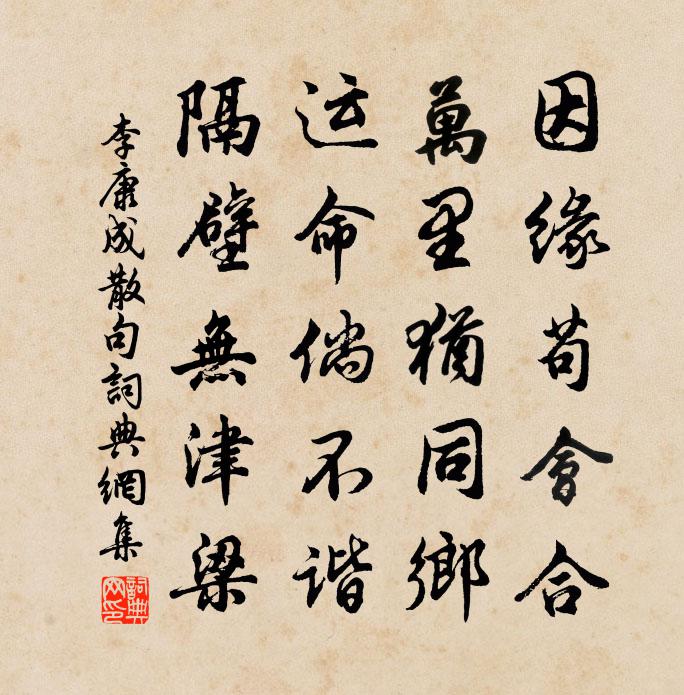 因缘苟會合
萬里猶同鄉
运命倘不谐
隔壁無津梁
李康成散句詞典網集
詞典网印